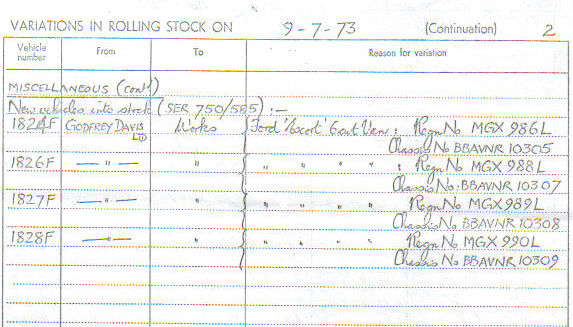 VARIATIONS IN ROLLING STOCK ON 9-7-73 (Continuation) 2
Vehicle number From To Reason for variation
MISCELLANEOUS (cont)
New vehicles into stock (SER 750/585) :—
1824F GODFREY DAVIS Ltd Works Ford 'Escort' 6cwt Van : Regn No MGX 986L
Chassis No BBAVNR 10305
1826F — " — " " " " " : Regn No MGX 988L
Chassis No : BBAVNR 10307
1827F — " — " " " " " Regn No MGX 989L
Chassis No BBAVNR 10308
1828F — " — " " " " " Regn No MGX 990L
Chassis No BBAVNR 10309